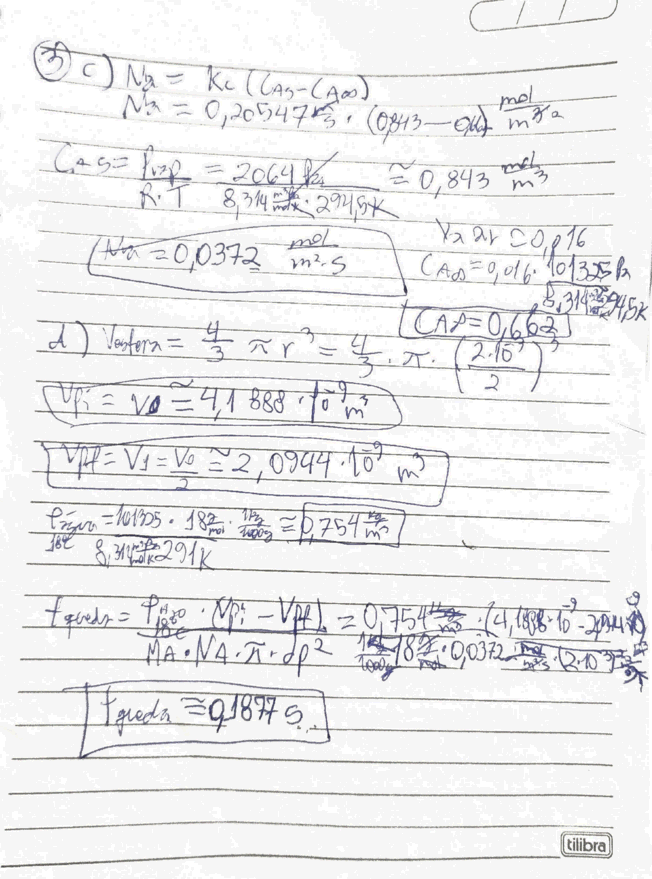 3 c) Na = Kc (CAs - CA∞)
Na = 0,20547 m/s · (0,843 - 0,662) mol/m³
CAs = Pvap/R·T = 2064 Pa/8,314 m³Pa/molK · 294,5K ≅ 0,843 mol/m³
Na = 0,0372 mol/m²·s
Ya ar = 0,016
CA∞ = 0,016 · 101325 Pa/8,314 · 294,5K
CA∞ = 0,662
d) Vesfera = 4/3 π r³ = 4/3 · π · (2·10⁻³/2)³
Vpi = V0 ≅ 4,1888 · 10⁻⁹ m³
Vpf = V1 = V0/2 ≅ 2,0944 · 10⁻⁹ m³
ρágua 18°C = 101325 · 18 g/mol · 1kg/1000g/8,314 m³Pa/molK · 291K ≅ 0,754 kg/m³
tqueda = ρH2O 18°C · (Vpi - Vpf)/MA · NA · π · dp² = 0,754 kg/m³ · (4,1888·10⁻⁹ - 2,0944·10⁻⁹)/1kg/1000g · 18 g/mol · 0,0372 mol/m²s · (2·10⁻³)²
tqueda ≅ 0,1877 s
tilibra